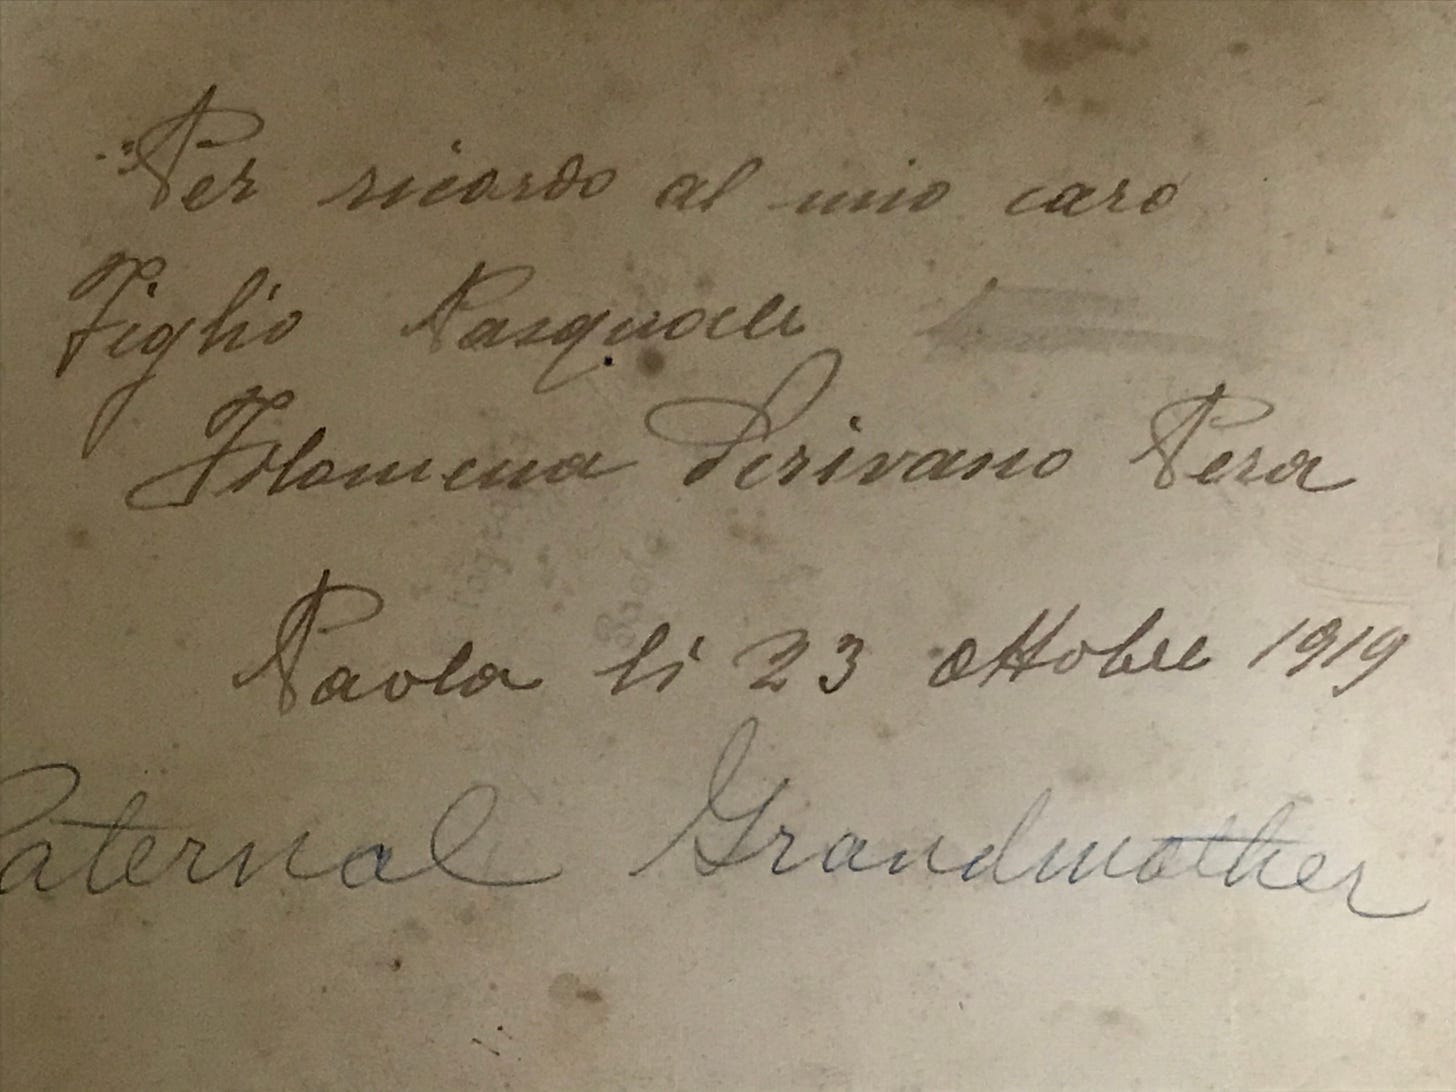 Per ricordo al mio caro
Figlio Pasquale
Filomena Scrivano Pera
Paola li 23 ottobre 1919
Paternal Grandmother